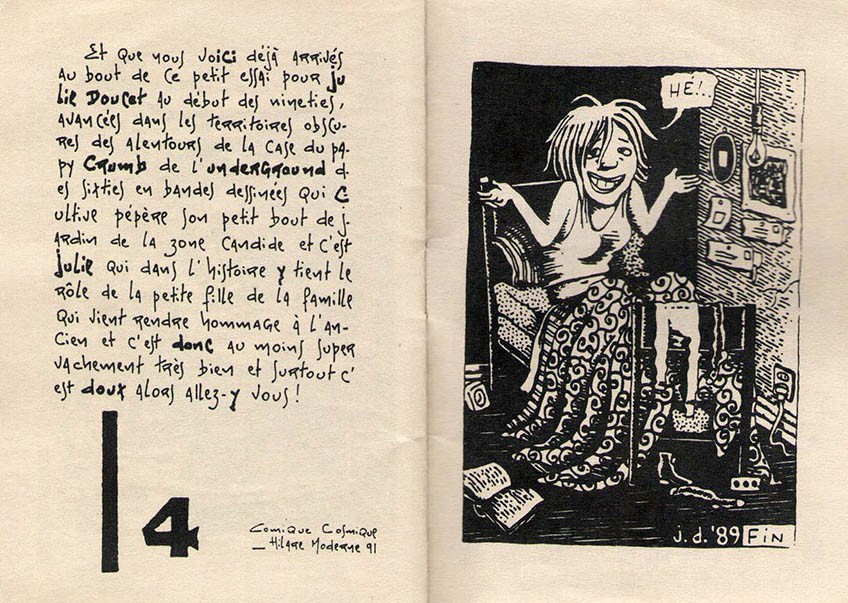 Et que nous voici déjà arrivés
au bout de ce petit essai pour ju
lie Doucet au début des nineties,
avancées dans les territoires obscu-
res des alentours de la case du pa-
py Crumb de l'underground d
es sixties en bandes dessinées qui c
ultive pépère son petit bout de j-
ardin de la zone candide et c'est
julie qui dans l'histoire y tient le
rôle de la petite fille de la famille
qui vient rendre hommage à l'an-
cien et c'est donc au moins super
vachement très bien et surtout c'
est doux alors allez-y vous !
4
Comique Cosmique
_ Hilare Moderne 91
HÉ!..
j.d.'89 FIN